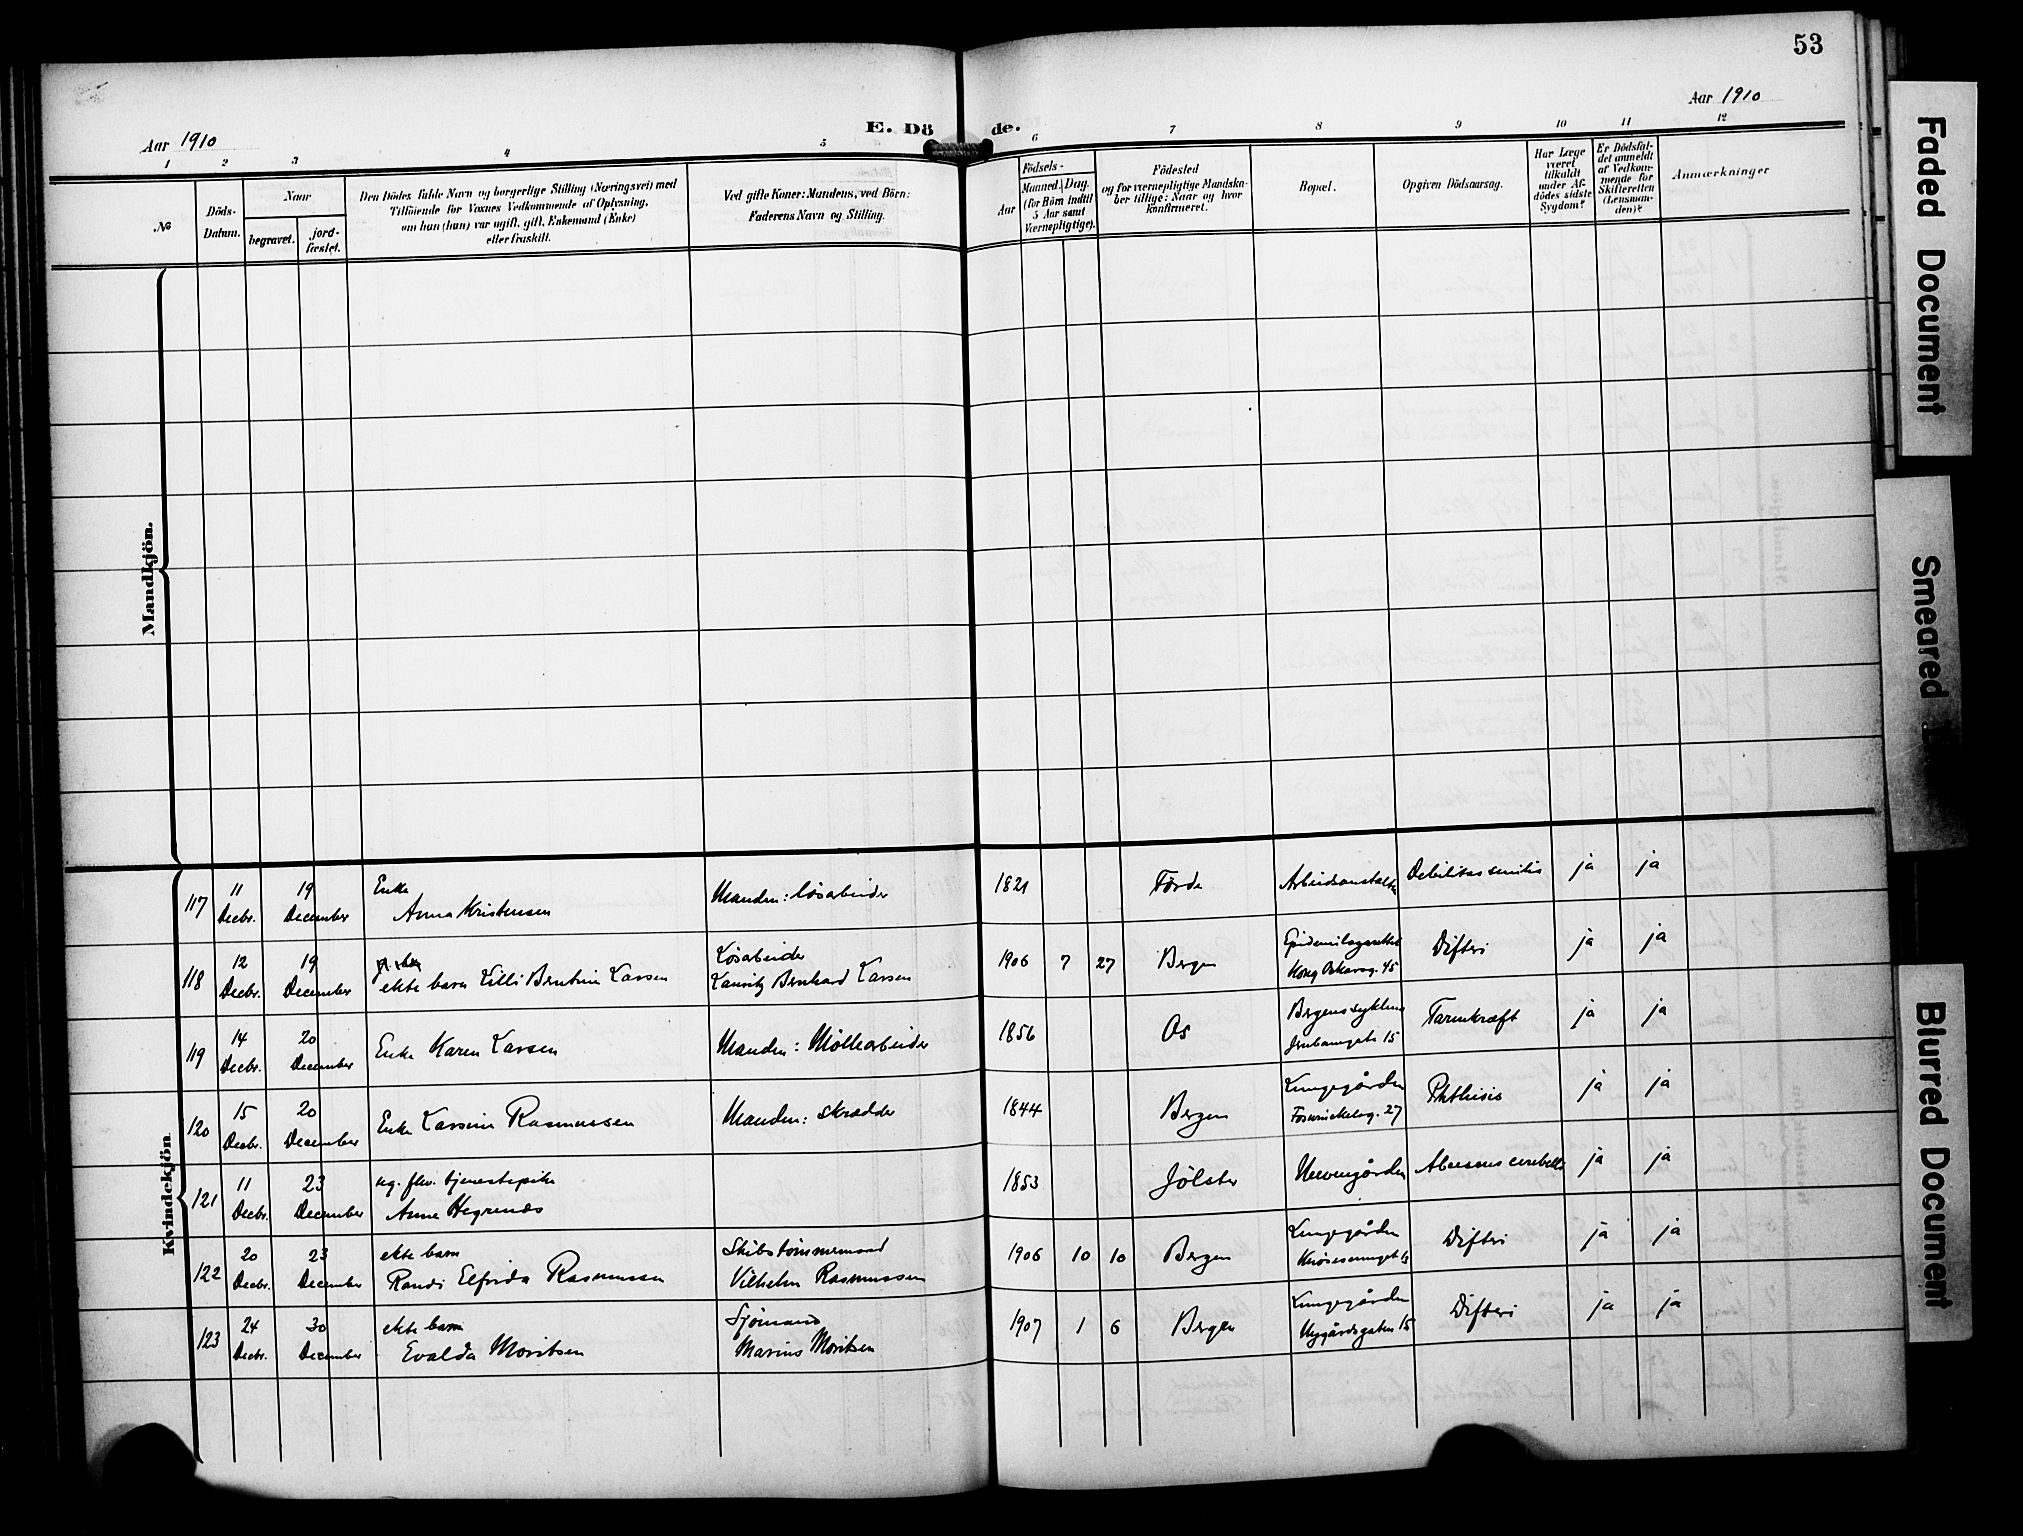 53
Aar 1910
Aar 1910
E. Dö
de.
1 2 3 4 5 6 7 8 9 10 11 12
№
Döds-
Datum.
Naar
begravet.
jord-
fæstet.
Den Dödes fulde Navn og borgerlige Stilling (Næringsvei) med
Tilföiende for Voxnes Vedkommende af Oplysning,
om han (hun) var ugift, gift, Enkemand (Enke)
eller fraskilt.
Ved gifte Koner: Mandens, ved Börn:
Faderens Navn og Stilling.
Födsels-
Aar
Maaned.
Dag.
(for Börn indtil
5 Aar samt
Værnepligtige).
Födested
og for værnepligtige Mandska-
ber tillige: Naar og hvor
konfirmeret.
Bopæl.
Opgiven Dödsaarsag.
Har Læge
været
tilkaldt
under Af-
dödes sidste
Sygdom?
Er Dödsfal-
det anmeldt
af Vedkom-
mende for
Skifteretten
(Lensman-
den)?
Anmærkninger
Mandkjön.
Kvindekjön.
117
11
Decbr.
19
December
Enke
Anna Kristensen
Manden: løsarbeider
1821
Førde
Arbeidsanstalten
Debilitas senilis
ja
ja
118
12
Decbr.
19
December
ekte barn Lilli Berntine Larsen
Løsarbeider
Lauritz Bernhard Larsen
1906
7
27
Bergen
Epidemilazarettet
Kong Oskarsg. 45
Difteri
ja
ja
119
14
Decbr.
20
December
Enke Karen Larsen
Manden: Møllearbeider
1856
Os
Bergens sykehus
Jernbanegate 15
Tarmkræft
ja
ja
120
15
Decbr.
20
December
Enke Larsine Rasmussen
Manden: skrædder
1844
Bergen
Lungegården
27
Phthisis
ja
ja
121
11
Decbr.
23
December
ug. fhv. tjenestepike
Anne Hegrenes
1853
Jølster
Nevengården
Abcessus cerebelli
ja
ja
122
20
Decbr.
23
December
ekte barn
Randi Elfrida Rasmussen
Skibstømmermand
Vilhelm Rasmussen
1906
10
10
Bergen
Lungegården
Difteri
ja
ja
123
24
Decbr.
30
December
ekte barn
Evalda Moritsen
Sjømand
Marius Moritsen
1907
1
6
Bergen
Lungegården
Nygårdsgaten 15
Difteri
ja
ja
Faded Document
Smeared
Blurred Document